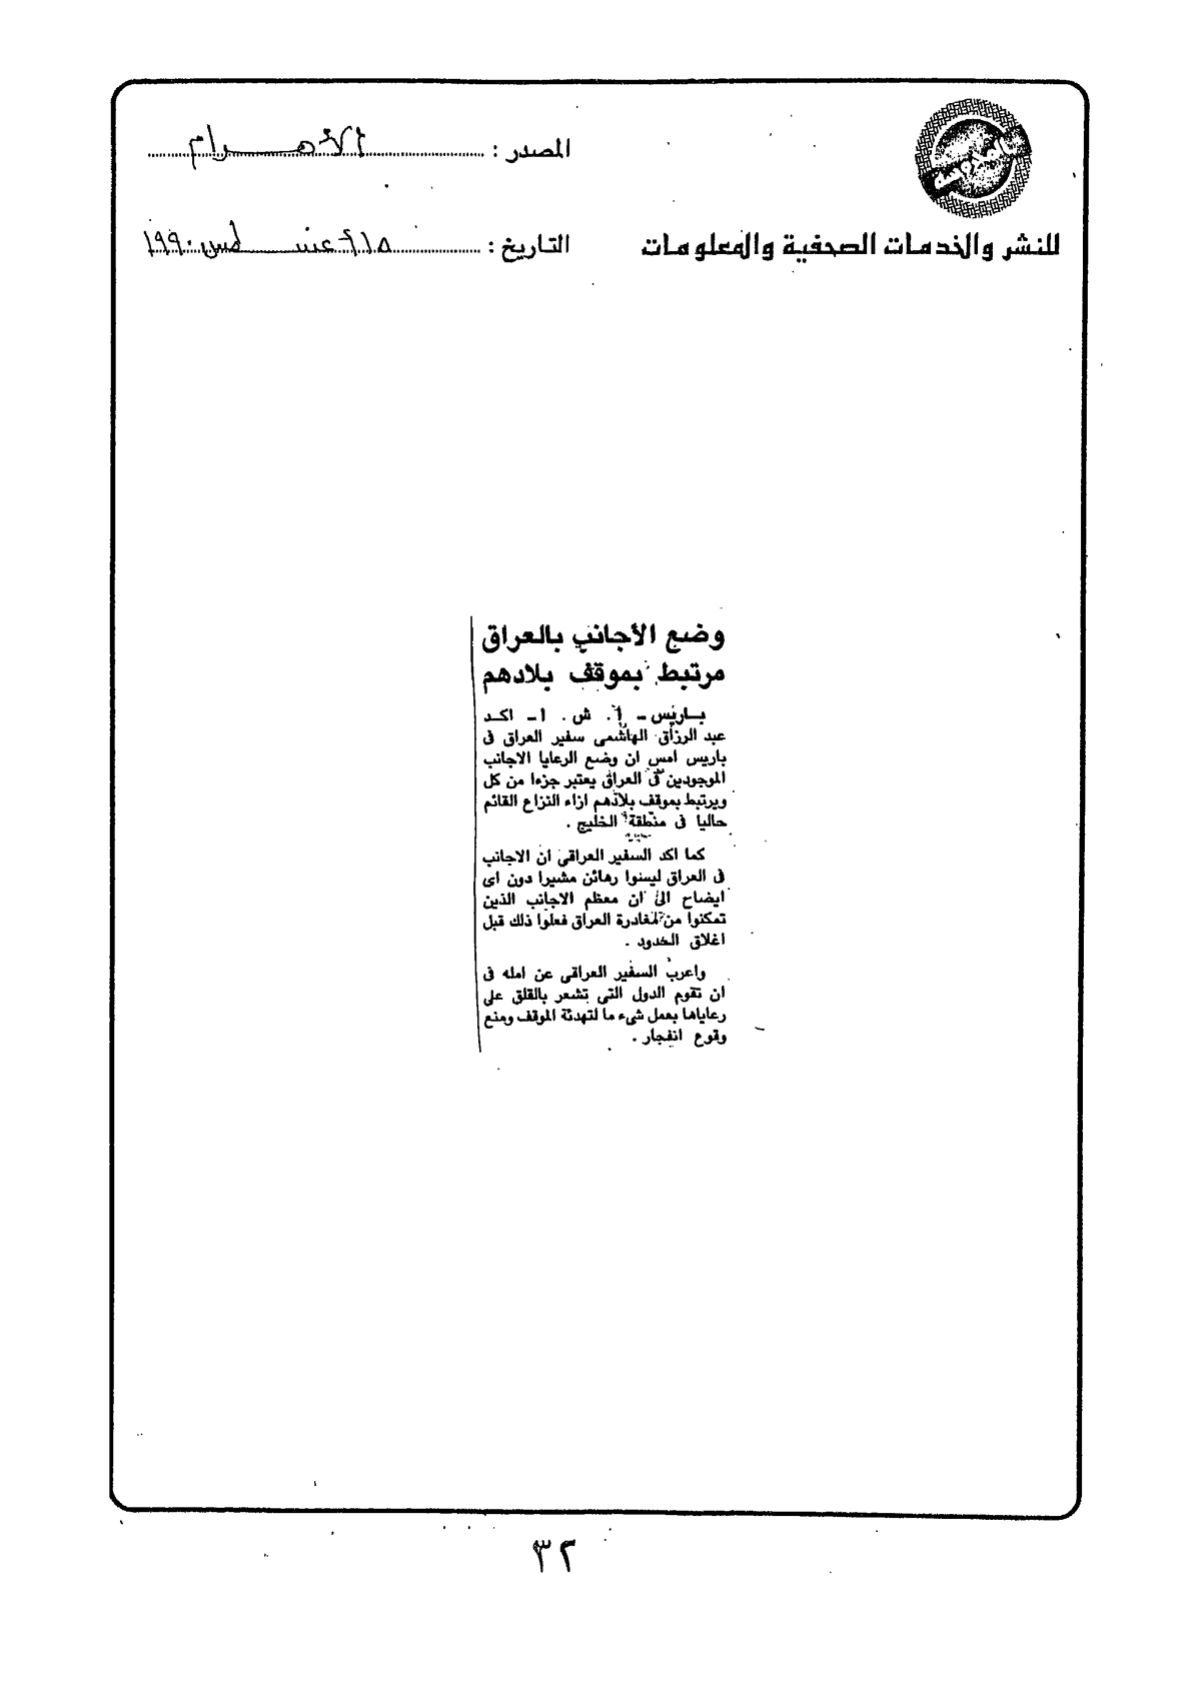 المصدر : الأهرام
للنشر والخدمات الصحفية والمعلومات
التاريخ : ١٥ أغسطس ١٩٩٠
وضع الأجانب بالعراق
مرتبط بموقف بلادهم
باريس - أ. ش. ا - اكد
عبد الرزاق الهاشمى سفير العراق فى
باريس امس ان وضع الرعايا الاجانب
الموجودين فى العراق يعتبر جزءا من كل
ويرتبط بموقف بلادهم ازاء النزاع القائم
حاليا فى منطقة الخليج .
كما اكد السفير العراقى ان الاجانب
فى العراق ليسوا رهائن مشيرا دون اى
ايضاح الى ان معظم الاجانب الذين
تمكنوا من مغادرة العراق فعلوا ذلك قبل
اغلاق الحدود .
واعرب السفير العراقى عن امله فى
ان تقوم الدول التى تشعر بالقلق على
رعاياها بعمل شىء ما لتهدئة الموقف ومنع
وقوع انفجار .
٣٢